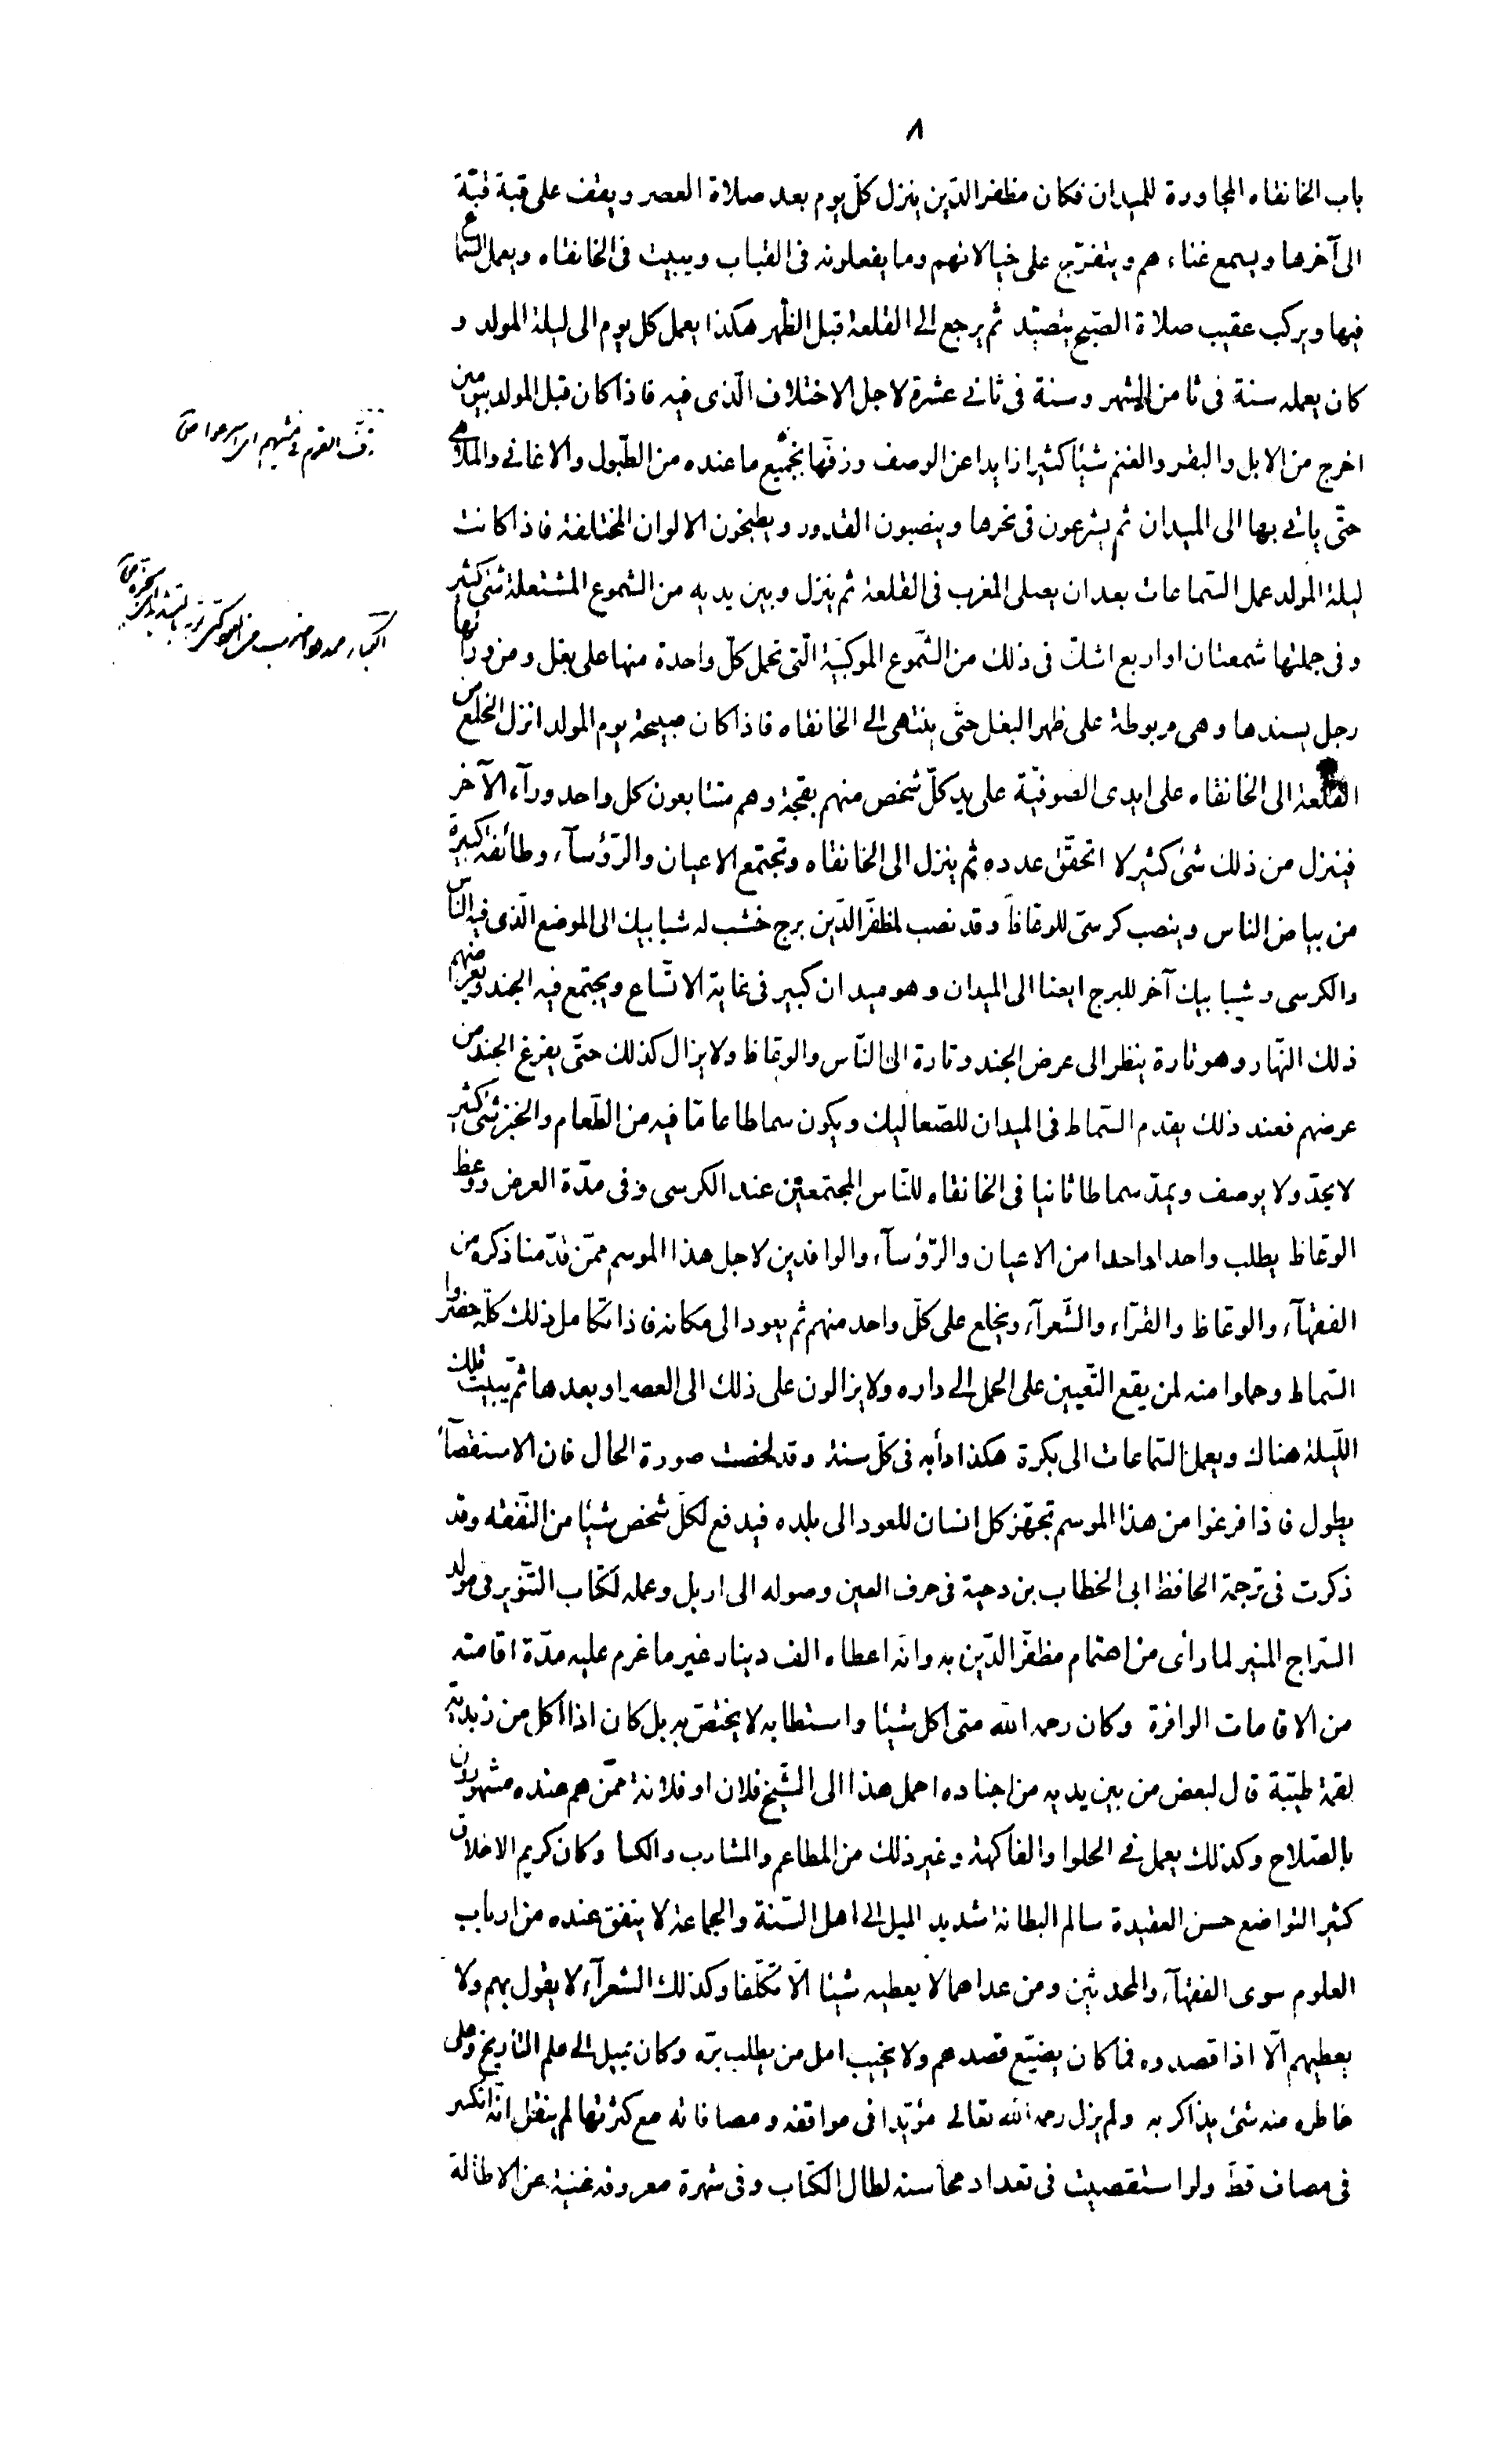 ٨
باب الخانقاه المجاورة للميدان فكان مظفر الدّين ينزل كلّ يوم بعد صلاة العصر ويقف على قبة قبّة
الى آخرها ويسمع غناءهم ويتفرّج على خيالاتهم وما يفعلونه فى القباب ويبيت فى الخانقاه ويعمل السّماع
فيها ويركب عقيب صلاة الصّبح يتصيّد ثم يرجع الى القلعة قبل الظّهر هكذا يعمل كل يوم الى ليلة المولد و
كان يعمله سنة فى ثامن الشهر وسنة فى ثانى عشرة لاجل الاختلاف الّذى فيه فاذا كان قبل المولد بيومين
اخرج من الابل والبقر والغنم شيئا كثيرا زايدا عن الوصف وزفّها بجميع ما عنده من الطّبول والاغانى والملاهى
حتّى ياتى بها الى الميدان ثم يشرعون فى نحرها وينصبون القدور ويطبخون الالوان المختلفة فاذا كانت
ليلة المولد عمل السّماعات بعد ان يصلى المغرب فى القلعة ثم ينزل وبين يديه من الشموع المشتعلة شئ كثير
وفى جملتها شمعتان او اربع اشكّ فى ذلك من الشّموع الموكبيّة الّتى تحمل كلّ واحدة منها على بغل ومن ورائها
رجل يسندها وهى مربوطة على ظهر البغل حتّى ينتهى الى الخانقاه فاذا كان صبيحة يوم المولد انزل الخلع من
القلعة الى الخانقاه على ايدى الصوفيّة على يد كلّ شخص منهم بقجة وهم متتابعون كل واحد ورآء الآخر
فينزل من ذلك شئ كثير لا اتحقّق عدده ثم ينزل الى الخانقاه وتجتمع الاعيان والرّؤسآء وطائفة كبيرة
من بياض الناس وينصب كرسى للوعّاظ وقد نصب لمظفّر الدّين برج خشب له شبابيك الى الموضع الّذى فيه النّاس
والكرسى وشبابيك آخر للبرج ايضا الى الميدان وهو ميدان كبير فى غاية الاتّساع ويجتمع فيه الجند ويعرضهم
ذلك النّهار وهو تارة ينظر الى عرض الجند وتارة الى النّاس والوعّاظ ولا يزال كذلك حتّى يفرغ الجند من
عرضهم فعند ذلك يقدم السّماط فى الميدان للصّعاليك ويكون سماطا عامّا فيه من الطّعام والخبز شئ كثير
لا يحدّ ولا يوصف ويمدّ سماطا ثانيا فى الخانقاه للنّاس المجتمعين عند الكرسى وفى مدّة العرض ووعظ
الوعّاظ يطلب واحدا واحدا من الاعيان والرّؤسآء والوافدين لاجل هذا الموسم ممّن قدّمنا ذكره من
الفقهآء والوعّاظ والقرّاء والشّعرآء ويخلع على كلّ واحد منهم ثم يعود الى مكانه فاذا تكامل ذلك كلّه حضروا
السّماط وحملوا منه لمن يقع التّعيين على الحمل الى داره ولا يزالون على ذلك الى العصر او بعدها ثمّ يبيت تلك
اللّيلة هناك ويعمل السّماعات الى بكرة هكذا دأبه فى كلّ سنة وقد لخصت صورة الحال فان الاستقصآء
يطول فاذا فرغوا من هذا الموسم تجهّز كل انسان للعود الى بلده فيدفع لكلّ شخص شيئا من النّفقه وقد
ذكرت فى ترجمة الحافظ ابى الخطاب بن دحية فى حرف العين وصوله الى اربل وعمله لكتاب التّنوير فى مولد
السّراج المنير لما رأى من اهتمام مظفّر الدّين به وانه اعطاه الف دينار غير ما غرم عليه مدّة اقامته
من الاقامات الوافرة وكان رحمه الله متى اكل شيئا واستطابه لا يختصّ به بل كان اذا اكل من زبديّة
لقمة طيّبة قال لبعض من بين يديه من اجناده احمل هذا الى الشّيخ فلان او فلانة ممّن هم عنده مشهورون
بالصّلاح وكذلك يعمل فى الحلوا والفاكهة وغير ذلك من المطاعم والمشارب والكسا وكان كريم الاخلاق
كثير التواضع حسن العقيدة سالم البطانة شديد الميل الى اهل السّنة والجماعة لا ينفق عنده من ارباب
العلوم سوى الفقهآء والمحدثين ومن عداهما لا يعطيه شيئا الّا تكلّفا وكذلك الشعرآء لا يقول بهم ولا
يعطيهم الّا اذا قصدوه فما كان يضيّع قصدهم ولا يخيب امل من يطلب برّه وكان يميل الى علم التأريخ وعلى
خاطره منه شئ يذاكر به ولم يزل رحمه الله تعالى مؤيّدا فى مواقفه ومصافاته مع كثرتها لم ينقل انّه انكسر
فى مصاف قطّ ولو استقصيت فى تعداد محاسنه لطال الكتاب وفى شهرة معروفه غنية عن الاطالة
زفّ القوم فى مشيهم اى اسرعوا